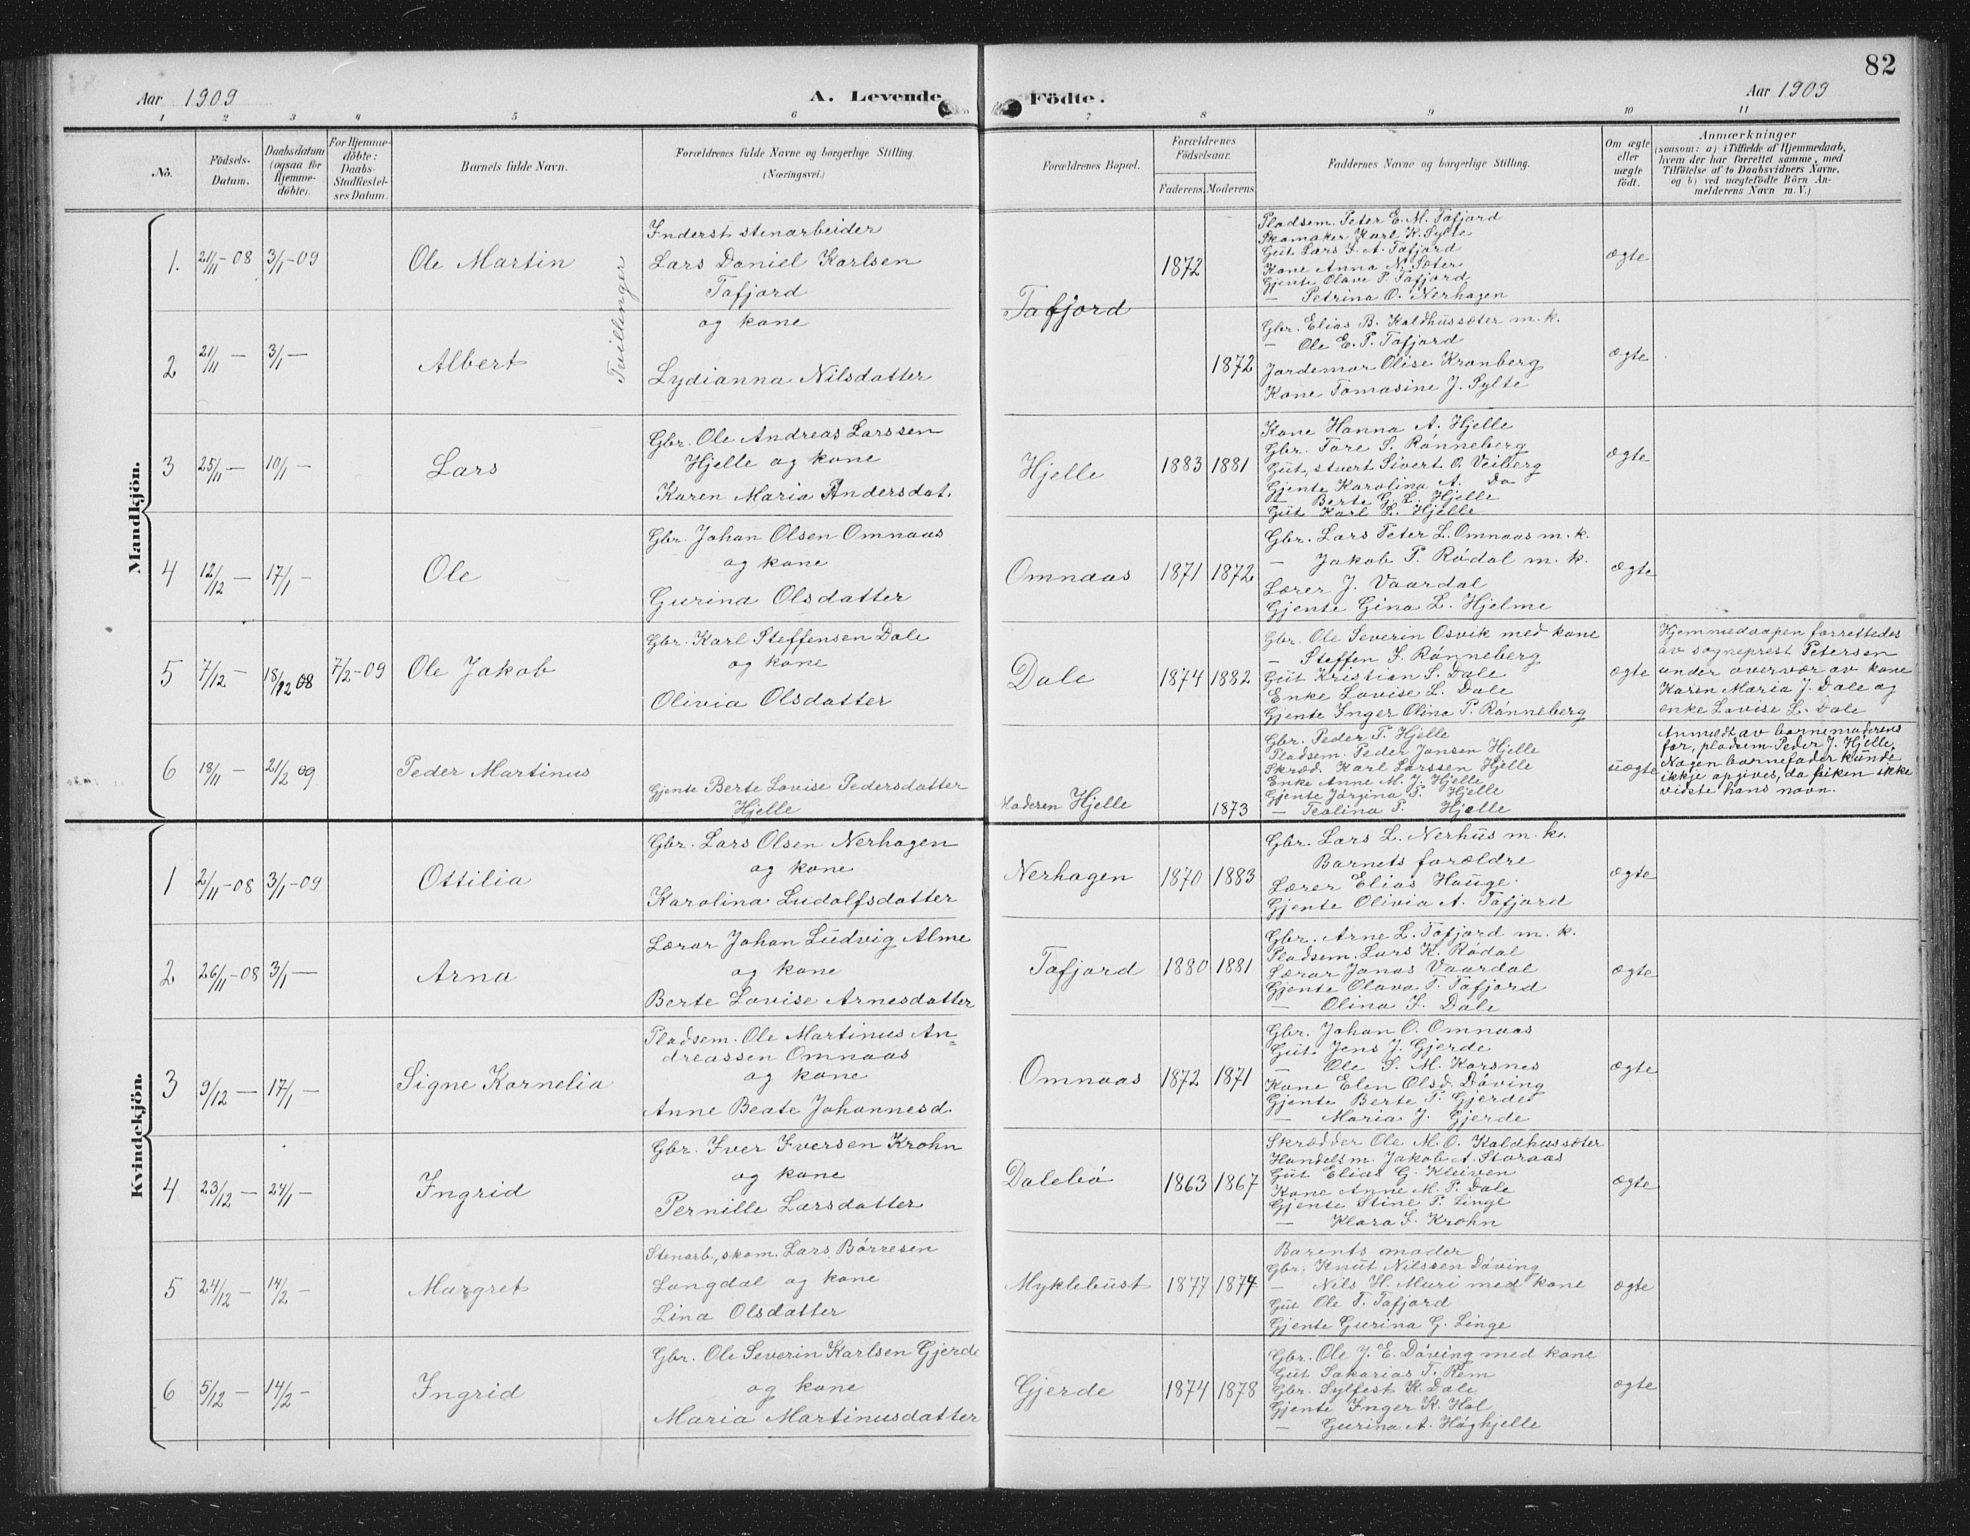 82
Aar 1909
A. Levende
Födte.
Aar 1909
1 2 3 4 5 6 7 8 9 10 11
No.
Födsels-
Datum.
Daabsdatum
(ogsaa för
Hjemme-
döbte).
For Hjemme-
döbte:
Daabs-
Stadfæstel-
ses Datum.
Barnets fulde Navn.
Forældrenes fulde Navne og borgerlige Stilling.
(Næringsvei.)
Forældrenes Bopæl.
Forældrenes
Födselsaar.
Faderens.
Moderens.
Faddernes Navne og borgerlige Stilling.
Om ægte
eller
uægte
födt.
Anmærkninger
(saasom: a) i Tilfælde af Hjemmedaab,
hvem der har forrettet samme, med
Tilföielse af to Daabsvidners Navne,
og b) ved uægtefödte Börn An-
melderens Navn m. V.)
Mandkjön.
1. 21/11-08 3/1-09
Ole Martin
Tvillinger
Inderst stenarbeider
Lars Daniel Karlsen
Tafjord
og kone
Tafjord
1872
Pladsem. Peter E. M. Tafjord
Skomaker Karl K. Sylte
Gut Lars I. A. Tafjord
Kone Anna N. Sæter
Gjente Olave P. Tafjord
— Petrina O. Nerhagen
ægte
2 21/11 — 3/1 —
Albert
Lydianna Nilsdatter
1872
Gbr. Elias B. Kaldhussæter m. k.
— Ole E. P. Tafjord
Jordemor Olise Kronberg
Kone Tomasine J. Sylte
ægte
3 25/11 — 10/1 —
Lars
Gbr. Ole Andreas Larssen
Hjelle og kone
Karen Maria Andersdat.
Hjelle
1883 1881
Kone Hanna A. Hjelle
Gbr. Tore S. Rønneberg
Gut, stuert Sivert O. Veiberg
Gjente Karolina A. Do
— Berte G. L. Hjelle
Gut Karl L. Hjelle
ægte
4 12/12 — 17/1 —
Ole
Gbr. Johan Olsen Omnaas
og kone
Gurina Olsdatter
Omnaas
1871 1872
Gbr. Lars Peter L. Omnaas m. k.
— Jakob P. Rødal m. k.
Lærer J. Vaardal
Gjente Gina L. Hjelme
ægte
5 7/12 — 18/12 08 7/2-09
Ole Jakob
Gbr. Karl Steffensen Dale
og kone
Olivia Olsdatter
Dale
1874 1882
Gbr. Ole Severin Osvik med kone
— Steffen I. Rønneberg
Gut Kristian S. Dale
Enke Lovise L. Dale
Gjente Inger Olina P. Rønneberg
ægte
Hjemmedaapen forrettedes
av sogneprest Petersen
under overvær av kone
Karen Maria J. Dale og
enke Lovise L. Dale
6 18/11 — 21/2 09
Peder Martinus
Gjente Berte Lovise Pedersdatter
Hjelle
Moderen Hjelle
1873
Gbr. Peder T. Hjelle
Pladsem. Peder Jonsen Hjelle
Skræd. Karl Larssen Hjelle
Enke Anne M. J. Hjelle
Gjente Jørgina P. Hjelle
— Teolina P. Hjelle
uægte
Anmeldt av barnemoderens
far, pladsem. Peder J. Hjelle.
Nogen barnefader kunde
ikkje opgives, da piken ikke
vidste hans navn.
Kvindekjön.
1 2/11-08 3/1-09
Ottilia
Gbr. Lars Olsen Nerhagen
og kone
Karolina Ludolfsdatter
Nerhagen
1870 1883
Gbr. Lars L. Nerhus m. k.
Barnets forældre
Lærer Elias Hauge
Gjente Olivia A. Tafjord
ægte
2 26/11-08 3/1 —
Arna
Lærar Johan Ludvig Alme
og kone
Berte Lovise Arnesdatter
Tafjord
1880 1881
Gbr. Arne L. Tafjord m. k.
Pladsem. Lars K. Rødal
Lærar Jonas Vaardal
Gjente Olava T. Tafjord
— Olina I. Dale
ægte
3 9/12 — 17/1 —
Signe Kornelia
Pladsem. Ole Martinus An=
dreassen Omnaas
og kone
Anne Beate Johannesd.
Omnaas
1872 1871
Gbr. Johan O. Omnaas
Gut Jens J. Gjerde
— Ole S. M. Korsnes
Kone Elen Olsd. Døving
Gjente Berte T. Gjerde
— Maria J. Gjerde
ægte
4 23/12 — 24/1 —
Ingrid
Gbr. Iver Iversen Krohn
og kone
Pernille Larsdatter
Dalebø
1863 1867
Skrædder Ole M. O. Kaldhussæter
Handelsm. Jakob A. Storaas
Gut Elias G. Kleiven
Kone Anne M. P. Dale
Gjente Stine P. Linge
— Klara I. Krohn
ægte
5 24/12 — 14/2 —
Margret
Stenarb., skom. Lars Børresen
Langdal og kone
Lina Olsdatter
Myklebust
1877 1874
Barents moder
Gbr. Knut Nilssen Døving
— Nils H. Muri med kone
Gut Ole T. Tafjord
Gjente Gurina G. Linge
ægte
6 5/12 — 14/2 —
Ingrid
Gbr. Ole Severin Karlsen Gjerde
og kone
Maria Martinusdatter
Gjerde
1874 1878
Gbr. Ole J. E. Døving med kone
Gut Sakarias T. Rem
Gbr. Sylfest K. Dale
Gjente Inger K. Hol
— Gurina A. Høghjelle
ægte